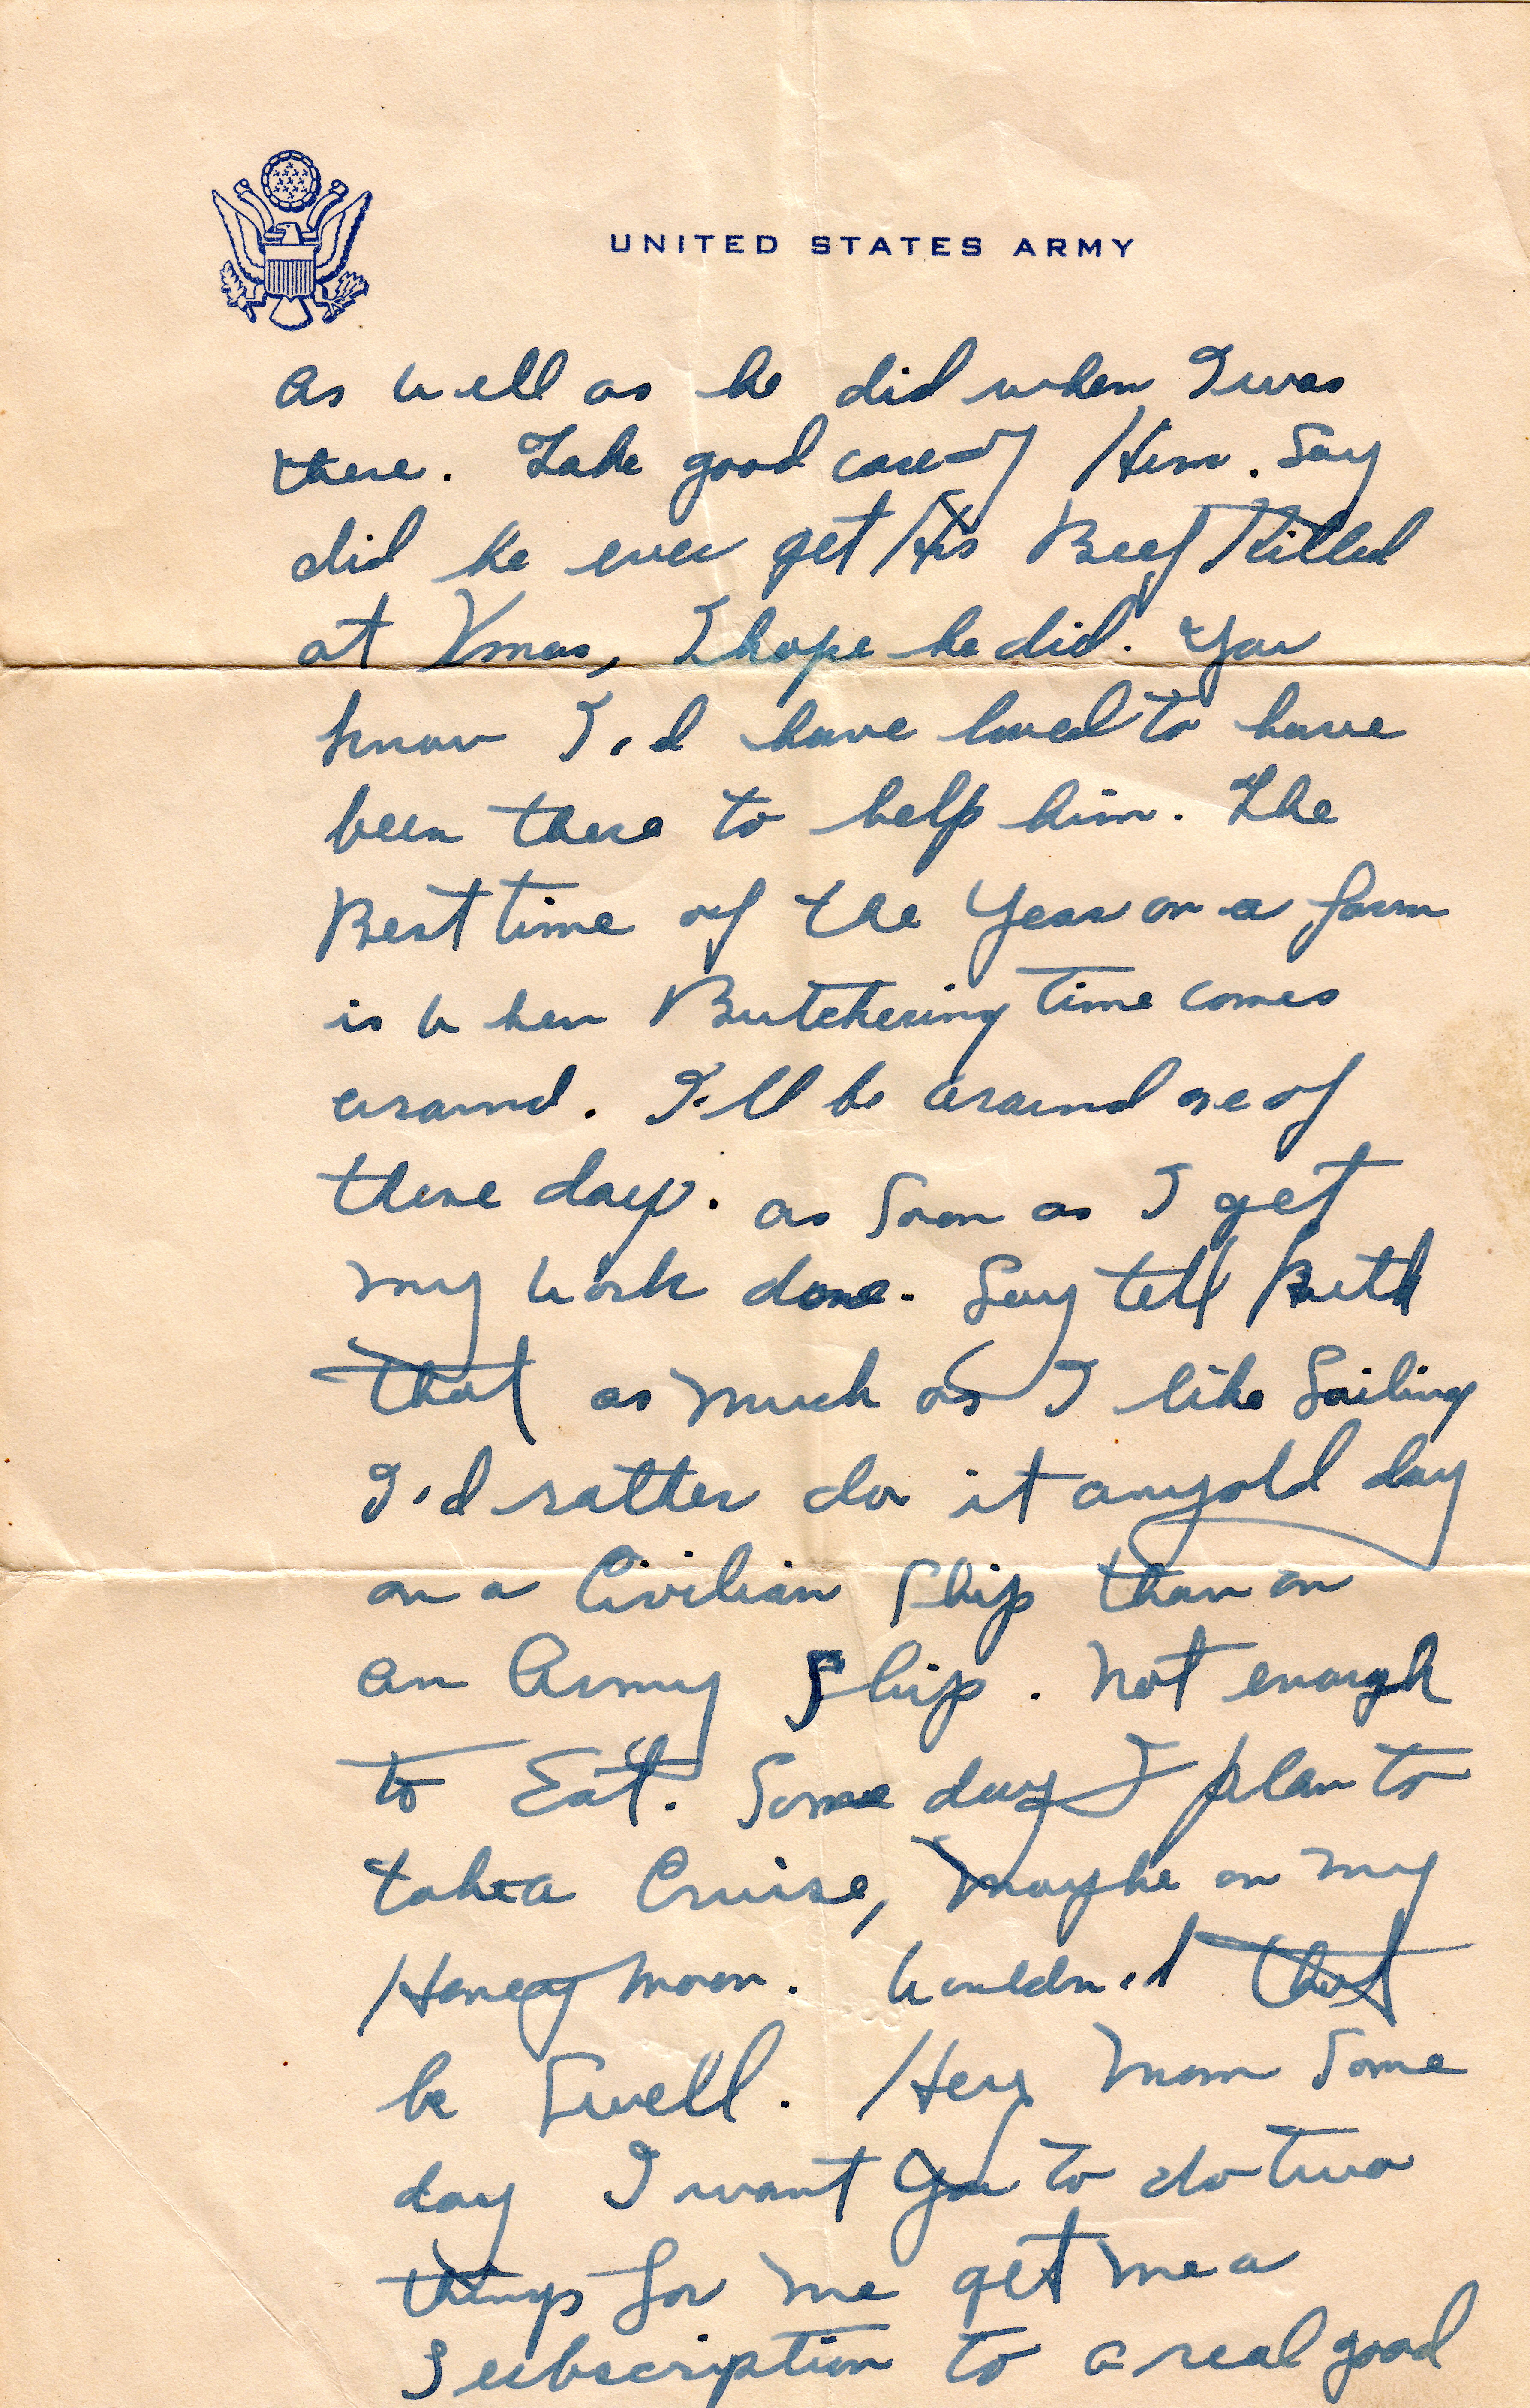 UNITED STATES ARMY
as well as he did when I was
there. Take good care of Him. Say
did he ever get His Beef Killed
at Xmas, I hope he did. You
know I'd have loved to have
been there to help him. The
Best time of the Year on a farm
is when Butchering time comes
around. I'll be around one of
these days. as Soon as I get
my work done. Say tell Ruth
that as much as I like Sailing
I'd rather do it any old day
on a Civilian Ship than on
an Army Ship. Not enough
to Eat. Some day I plan to
take a Cruise, Maybe on my
Honeymoon. Wouldn't that
be Swell. Hey Mom Some
day I want You to do two
things for me get me a
Subscription to a real good